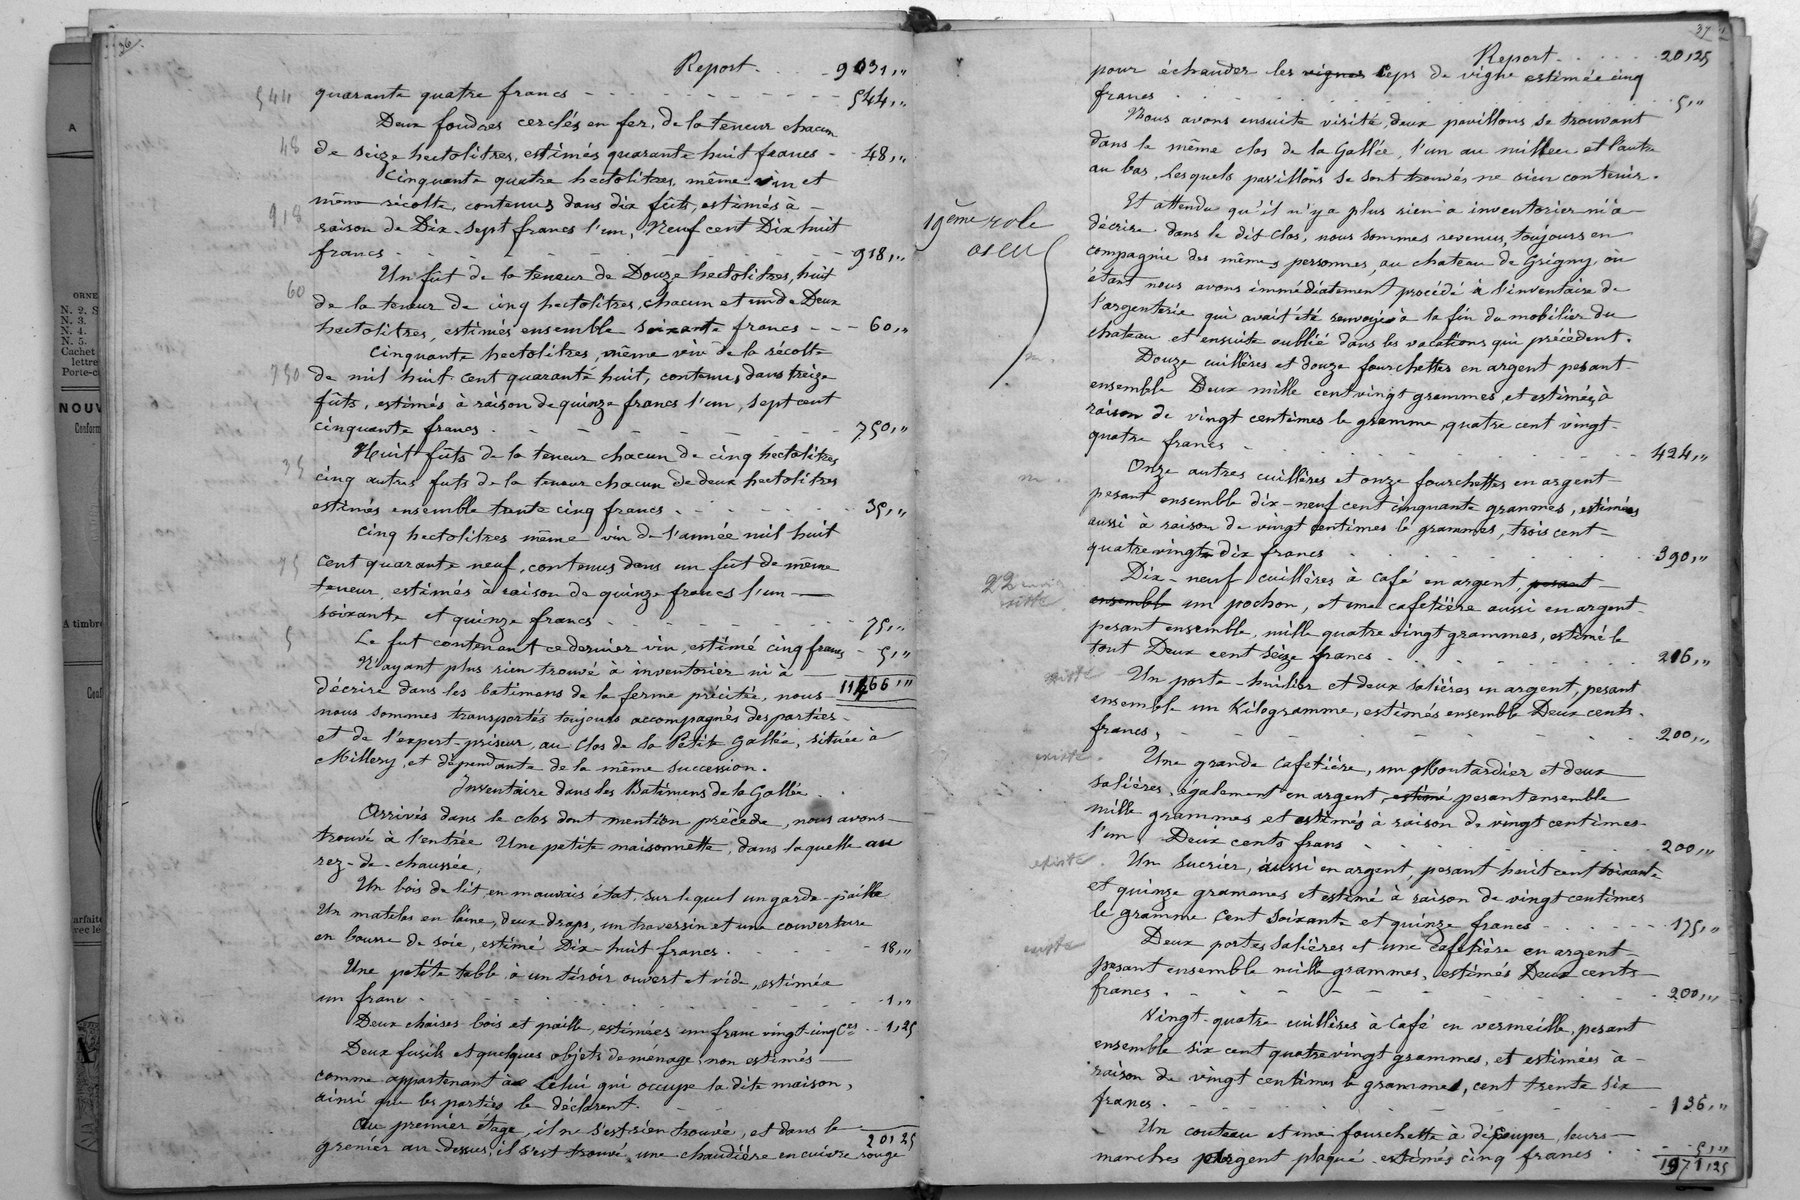 36.
Report . . . 9031,"
544 quarante quatre francs - - - - - - - - 544,"
Deux foudres cerclés en fer, de la teneur chacun
48 de seize hectolitres, estimés quarante huit francs - - 48,"
Cinquante quatre hectolitres, même vin et
même récolte, contenus dans dix fûts, estimés à -
918 raison de Dix-Sept francs l'un, Neuf cent Dix huit
francs - - - - - - - - - 918,"
Un fût de la teneur de Douze hectolitres, huit
60 de la teneur de cinq hectolitres, chacun et un de Deux
hectolitres, estimés ensemble soixante francs - - - 60,"
Cinquante hectolitres, même vin de la récolte
750 de mil huit cent quarante huit, contenus dans treize
fûts, estimés à raison de quinze francs l'un, sept cent
cinquante francs - - - - - - - 750,"
Huit fûts de la teneur chacun de cinq hectolitres
35 cinq autres futs de la teneur chacun de deux hectolitres
estimés ensemble trente cinq francs - - - - - - 35,"
Cinq hectolitres même vin de l'année mil huit
75 cent quarante neuf, contenus dans un fût de même
teneur, estimés à raison de quinze francs l'un —
soixante et quinze francs - - - - - - - 75,"
5 Le fut contenant ce dernier vin, estimé cinq francs - 5,"
N'ayant plus rien trouvé à inventorier ni à
décrire dans les batimens de la ferme précitée, nous 11466"
nous sommes transportés toujours accompagnés des parties -
et de l'expert-priseur, au clos de la Petite Gallée, située à
Millery, et dépendante de la même succession.
Inventaire dans les Batimens de la Gallée.
Arrivés dans le clos dont mention précède, nous avons —
trouvé à l'entrée Une petite maisonnette, dans laquelle au
rez-de-chaussée,
Un bois de lit, en mauvais état, sur lequel un garde-paille
Un matelas en laine, deux draps, un traversin et une couverture
en bourre de soie, estimé Dix huit francs. - 18,"
Une petite table à un tiroir ouvert et vide, estimée
un franc - - - - - - - - - 1,"
Deux chaises bois et paille, estimées un franc vingt-cinq Ces - - 1,25
Deux fusils et quelques objets de ménage, non estimés —
comme appartenant à Celui qui occupe la dite maison,
ainsi que les parties le déclarent.
Au premier étage, il ne s'est rien trouvé, et dans le
grenier au-dessus, il s'est trouvé, une chaudière en cuivre rouge 20,25
37
Report . . . . . 20,25
pour échauder les vignes Ceps de vigne estimée cinq
francs . . . . . . . . 5,"
Nous avons ensuite visité, deux pavillons se trouvant
dans le même clos de la Gallée, l'un au milieu et l'autre
au bas, lesquels pavillons se sont trouvés ne rien contenir.
19ème role
Et attendu qu'il n'y a plus rien à inventorier ni à -
décrire dans le dit clos, nous sommes revenus, toujours en
compagnie des mêmes personnes, au chateau de Grigny, où
étant nous avons immédiatement procédé à l'inventaire de
l'argenterie qui avait été renvoyée à la fin du mobilier du
chateau et ensuite oublié dans les vacations qui précèdent.
m. Douze cuillères et douze fourchettes en argent pesant -
ensemble Deux mille cent vingt grammes, et estimées à
raison de vingt centimes le gramme, quatre cent vingt -
quatre francs - . . . . . . . 424,"
m. Onze autres cuillères et onze fourchettes en argent -
pesant ensemble dix-neuf cent cinquante grammes, estimées
aussi à raison de vingt centimes le grammes, trois cent -
quatrevingt dix francs . . . . . . . 390,"
Dix-neuf cuillères à café en argent, pesant
ensemble un pochon, et une cafetière aussi en argent -
pesant ensemble, mille quatre vingt grammes, estimé le
tout Deux cent seize francs . . . . . . 216,"
existe Un porte-huilier et deux salières en argent, pesant
ensemble un Kilogramme, estimés ensemble Deux cents -
francs, - - - - - - - - 200,"
existe. Une grande cafetière, un Moutardier et deux
salières, également en argent, estimé pesant ensemble
mille grammes et estimés à raison de vingt centimes -
l'un, Deux cents frans - . . . . . . 200,"
existe. Un sucrier, aussi en argent, pesant huit cent soixante
et quinze grammes et estimé à raison de vingt centimes
le gramme cent soixante et quinze francs - . . . . 175,"
existe Deux portes salières et une cafetière en argent -
pesant ensemble mille grammes, estimés Deux cents -
francs . . . . . . . . 200,"
Vingt-quatre cuillères à Café en vermeille, pesant
ensemble six cent quatrevingt grammes, et estimées à -
raison de vingt centimes le grammes, cent trente six
francs . - - - - - - - 136,"
Un couteau et une fourchette à découper, leurs —
manches argent plaqué estimés cinq francs . . 5,"
1971,25
A
ORNE
N. 2. S
N. 3.
N. 4.
N. 5.
Cachet
lettre
Porte-c
NOUV
Conform
A timbre
Conf
arfaite
vec le